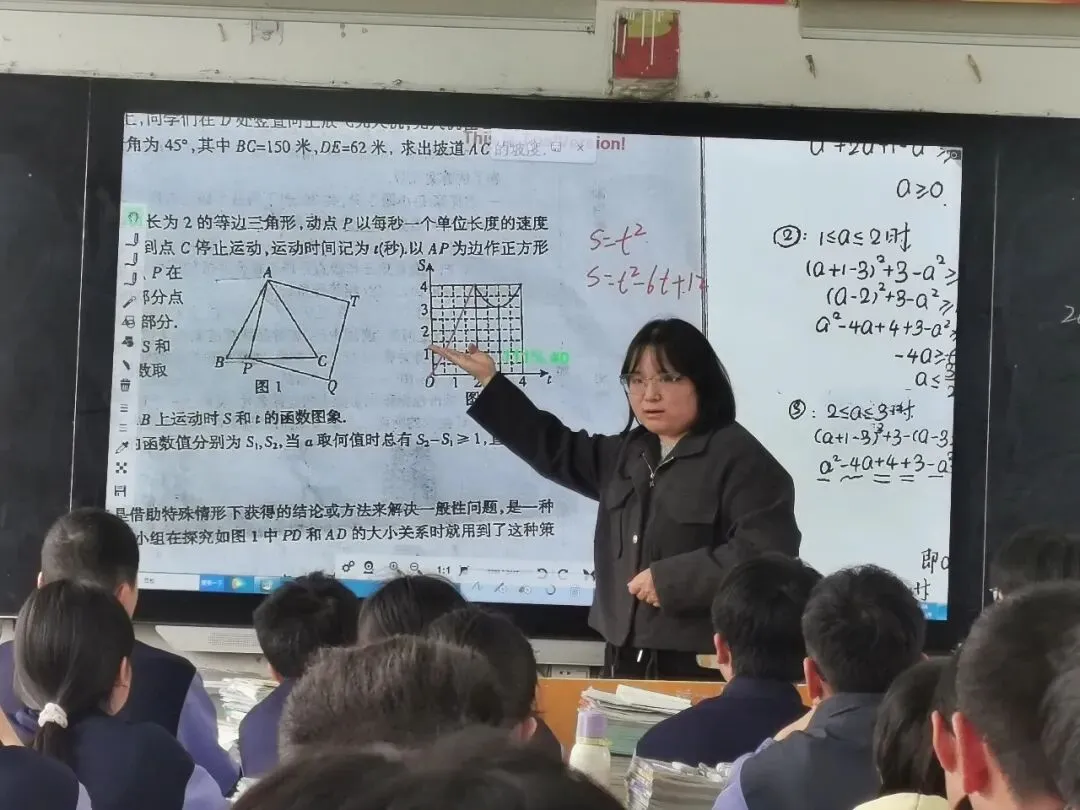 上,同学们在 D 处竖直向上放飞无人机,无人机
角为 45°,其中 BC=150 米,DE=62 米, 求出坡道 AC 的坡度.
长为 2 的等边三角形,动点 P 以每秒一个单位长度的速度
到点 C 停止运动,运动时间记为 t(秒).以 AP 为边作正方形
P 在
部分点
部分.
S 和
数取
A
T
B
P
C
Q
图 1
S
4
3
2
1
O 1 2 4 t
S=t²
S=t²-6t+12
B 上运动时 S 和 t 的函数图象.
函数值分别为 S₁,S₂,当 a 取何值时总有 S₂-S₁≥1,
是借助特殊情形下获得的结论或方法来解决一般性问题,是一种
小组在探究如图 1 中 PD 和 AD 的大小关系时就用到了这种策
1:1
a²+2a+1-a²≥
a≥0.
②: 1≤a≤2时
(a+1-3)²+3-a²≥
(a-2)²+3-a²≥
a²-4a+4+3-a²≥
-4a≥-6
a≤3/2
③: 2≤a≤3时
(a+1-3)²+3-(a-3
a²-4a+4+3-a²
即a
时